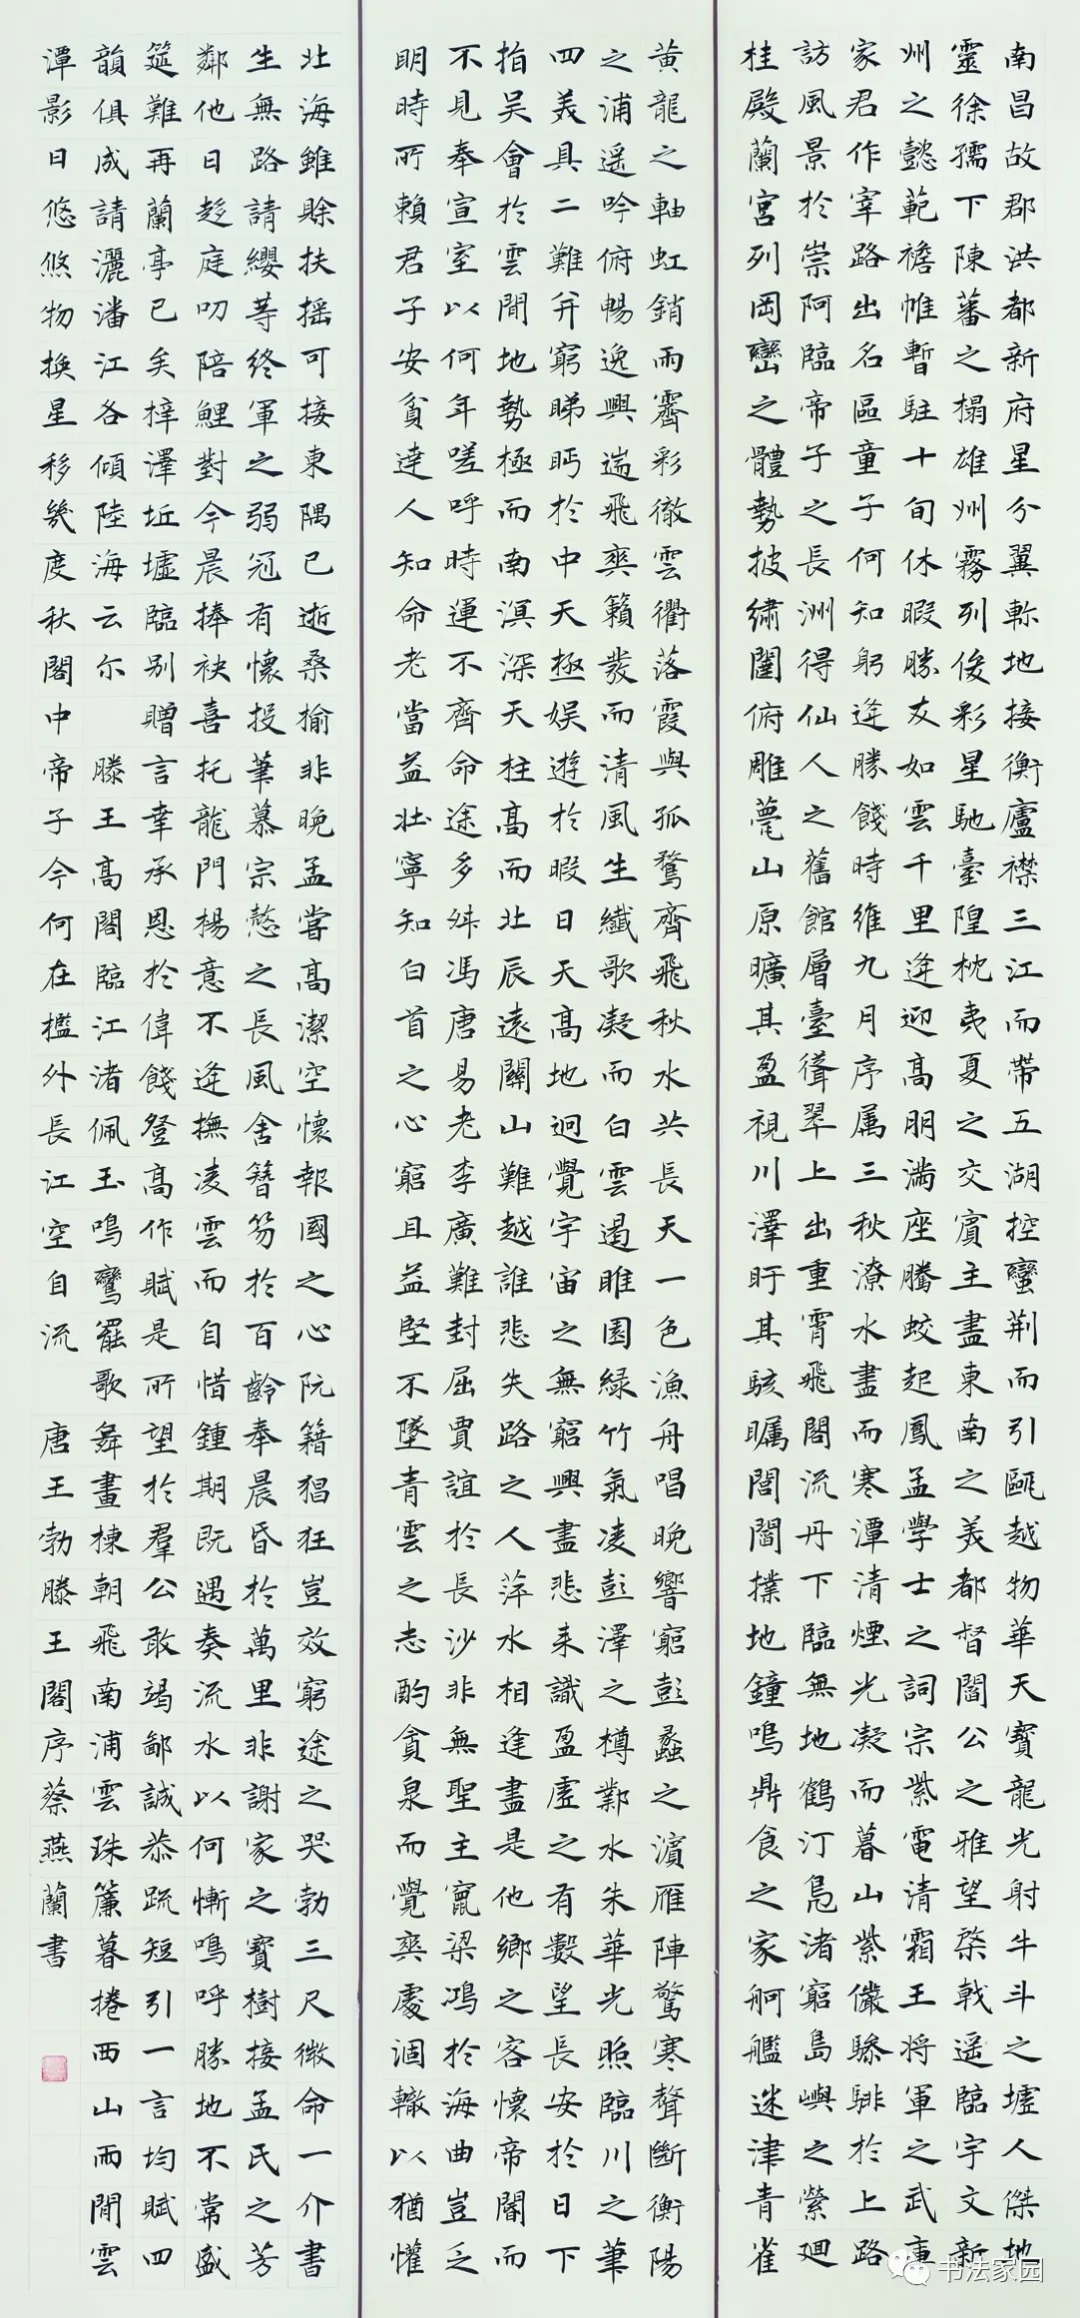 南昌故郡洪都新府星分翼軫地接衡廬襟三江而帶五湖控蠻荊而引甌越物華天寶龍光射牛斗之墟人傑地
靈徐孺下陳蕃之榻雄州霧列俊彩星馳臺隍枕夷夏之交賓主盡東南之美都督閻公之雅望棨戟遥臨宇文新
州之懿範襜帷暫駐十旬休暇勝友如雲千里逢迎高朋滿座騰蛟起鳳孟學士之詞宗紫電清霜王將軍之武庫
家君作宰路出名區童子何知躬逢勝餞時維九月序属三秋潦水盡而寒潭清煙光凝而暮山紫儼驂騑於上路
訪風景於崇阿臨帝子之長洲得仙人之舊館層臺聳翠上出重霄飛閣流丹下臨無地鶴汀鳧渚窮島嶼之縈迴
桂殿蘭宮列岡巒之體勢披繡闥俯雕甍山原曠其盈視川澤盱其駭矚閭閻撲地鐘鳴鼎食之家舸艦迷津青雀
黃龍之軸虹銷雨霽彩徹雲衢落霞與孤鶩齊飛秋水共長天一色漁舟唱晚響窮彭蠡之濱雁陣驚寒聲斷衡陽
之浦遥吟俯暢逸興遄飛爽籟發而清風生纖歌凝而白雲遏睢園綠竹氣凌彭澤之樽鄴水朱華光照臨川之筆
四美具二難并窮睇眄於中天極娛遊於暇日天高地迥覺宇宙之無窮興盡悲來識盈虛之有數望長安於日下
指吳會於雲間地勢極而南溟深天柱高而北辰遠關山難越誰悲失路之人萍水相逢盡是他鄉之客懷帝閽而
不見奉宣室以何年嗟呼時運不齊命途多舛馮唐易老李廣難封屈賈誼於長沙非無聖主竄梁鴻於海曲豈乏
明時所賴君子安貧達人知命老當益壯寧知白首之心窮且益堅不墜青雲之志酌貪泉而覺爽處涸轍以猶懽
北海雖賒扶摇可接東隅已逝桑榆非晚孟嘗高潔空懷報國之心阮籍猖狂豈效窮途之哭勃三尺微命一介書
生無路請纓等終軍之弱冠有懷投筆慕宗慤之長風舍簪笏於百齡奉晨昏於萬里非謝家之寶樹接孟氏之芳
鄰他日趍庭叨陪鯉對今晨捧袂喜托龍門楊意不逢撫凌雲而自惜鍾期既遇奏流水以何慚鳴呼勝地不常盛
筵難再蘭亭已矣梓澤坵墟臨別贈言幸承恩於偉餞登高作賦是所望於羣公敢竭鄙誠恭疏短引一言均賦四
韻俱成請灑潘江各傾陸海云尔 滕王高閣臨江渚佩玉鳴鸞罷歌舞畫棟朝飛南浦雲珠簾暮捲西山雨閒雲
潭影日悠悠物換星移幾度秋閣中帝子今何在檻外長江空自流 唐王勃滕王閣序蔡燕蘭書
书法家园